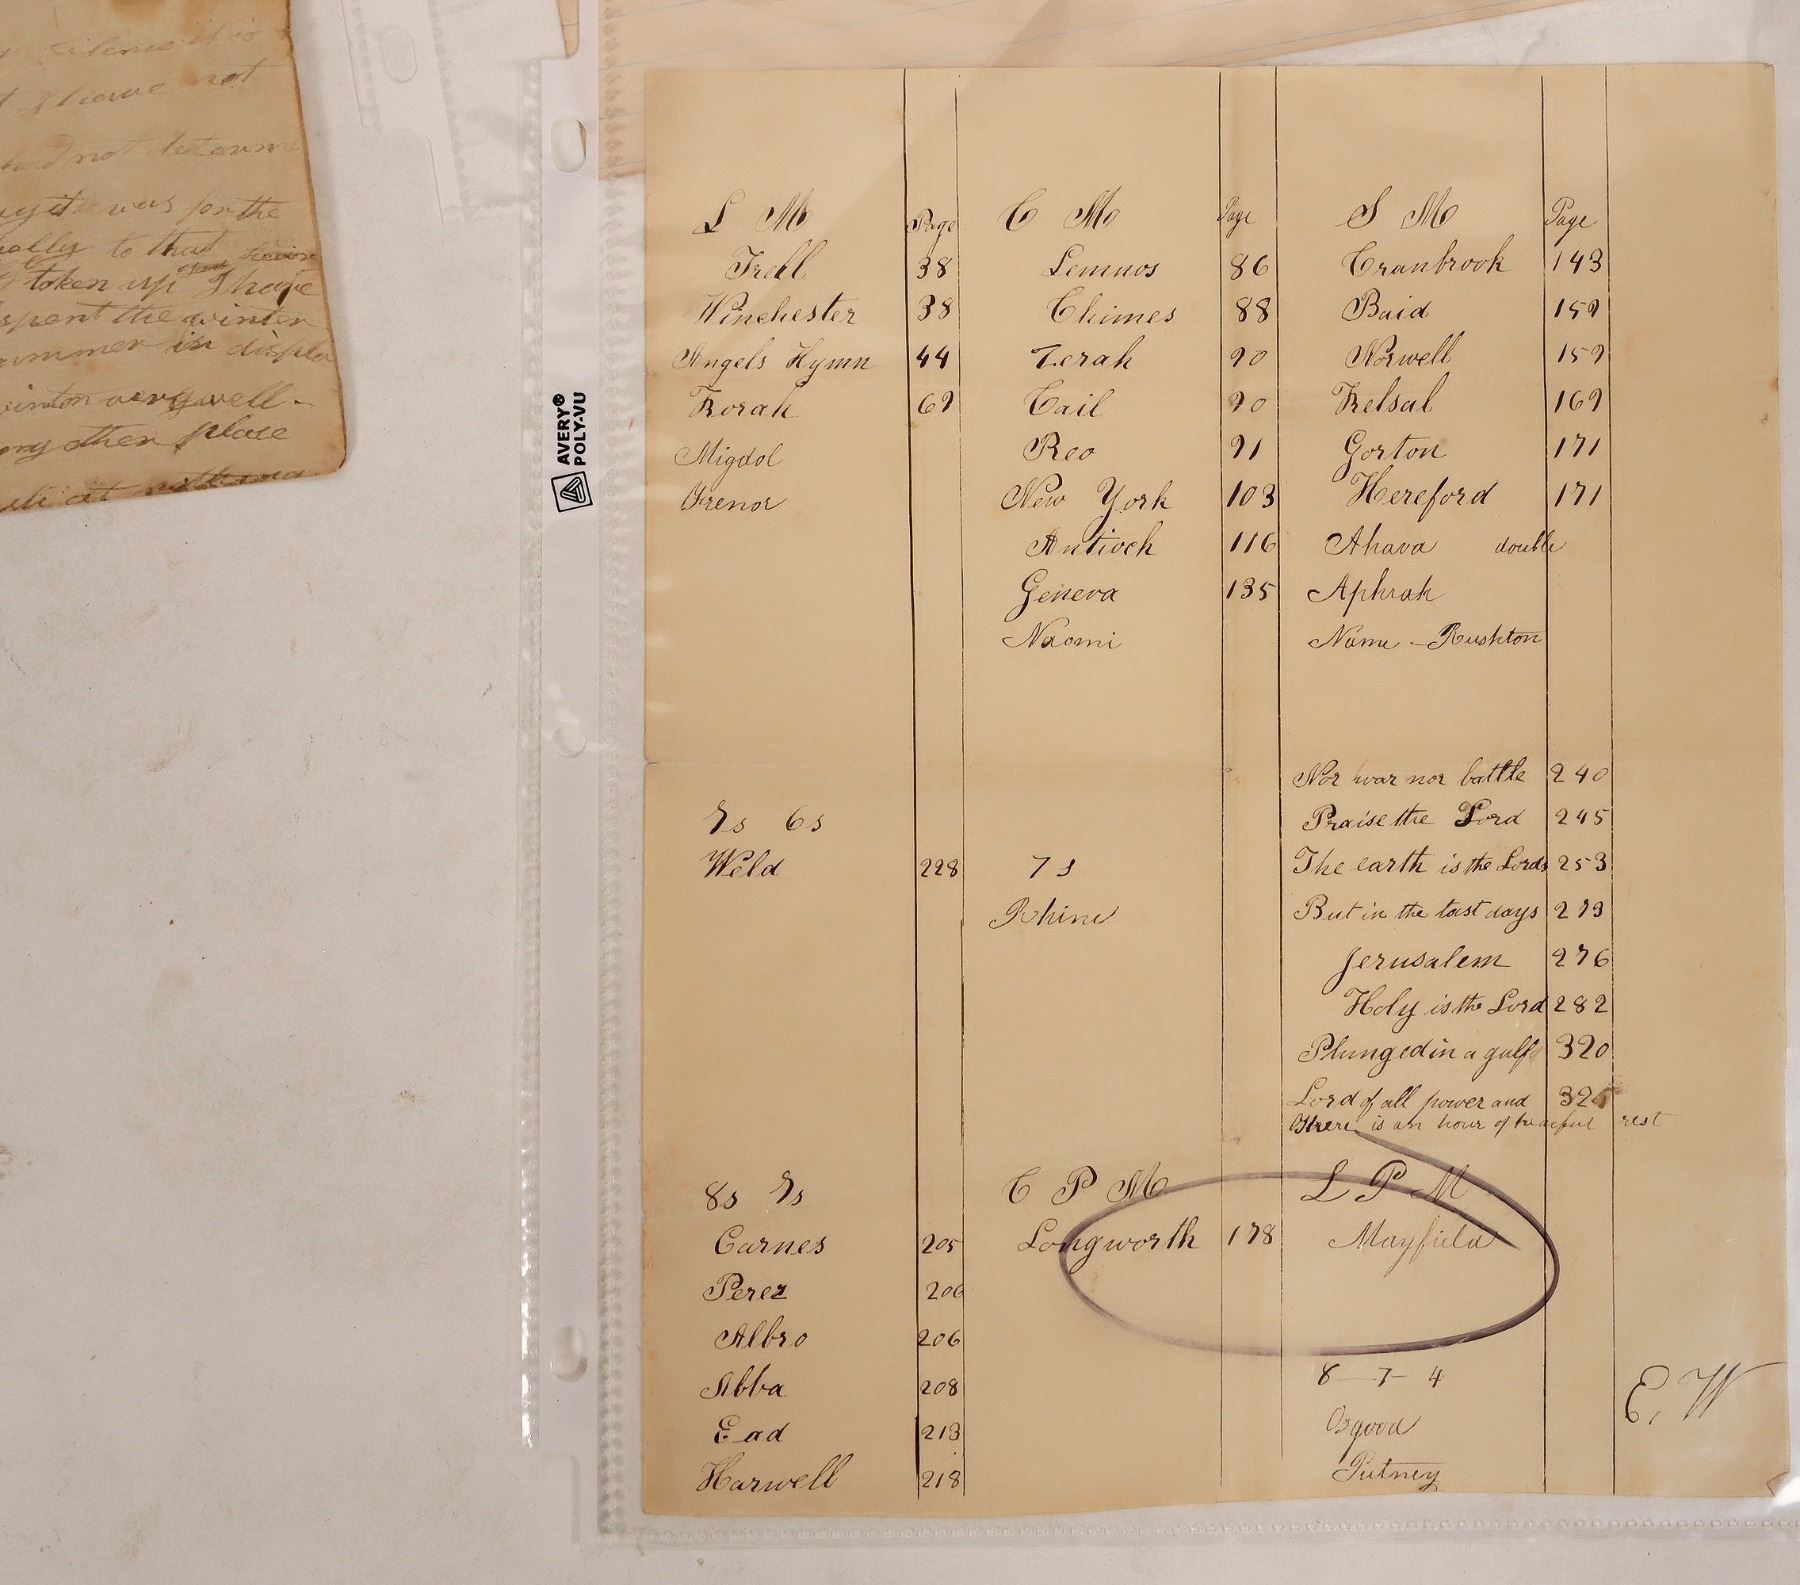 silence it is
I leave not
had not determ
yet was for the
to that
taken up I have
spent the winter
summer in
very well.
any other place
AVERY®
POLY-VU
L M Page C M Page S M Page
38 Lemnos 86 Cranbrook 143
Winchester 38 Chimes 88 159
Angels Hymn 44 Zerah 90 Norwell 159
69 90 169
Migdol Reo 91 Gorton 171
New York 103 Hereford 171
Antioch 116 Ahava double
Geneva 135 Aphrah
Naomi Name - Rushton
Nor war nor battle 240
7s 6s Praise the Lord 245
Weld 228 7s The earth is the Lords 253
Rhine But in the last days 273
Jerusalem 276
Holy is the Lord 282
Plunged in a gulf 320
Lord of all power and
There is an hour of peaceful rest
8s 7s C P M L P M
Carnes 205 Longworth 178 Mayfield
Perez 206
Albro 206
Abba 208 8 - 7 - 4
Ead 213 Osgood E. W
Harwell 218 Putney